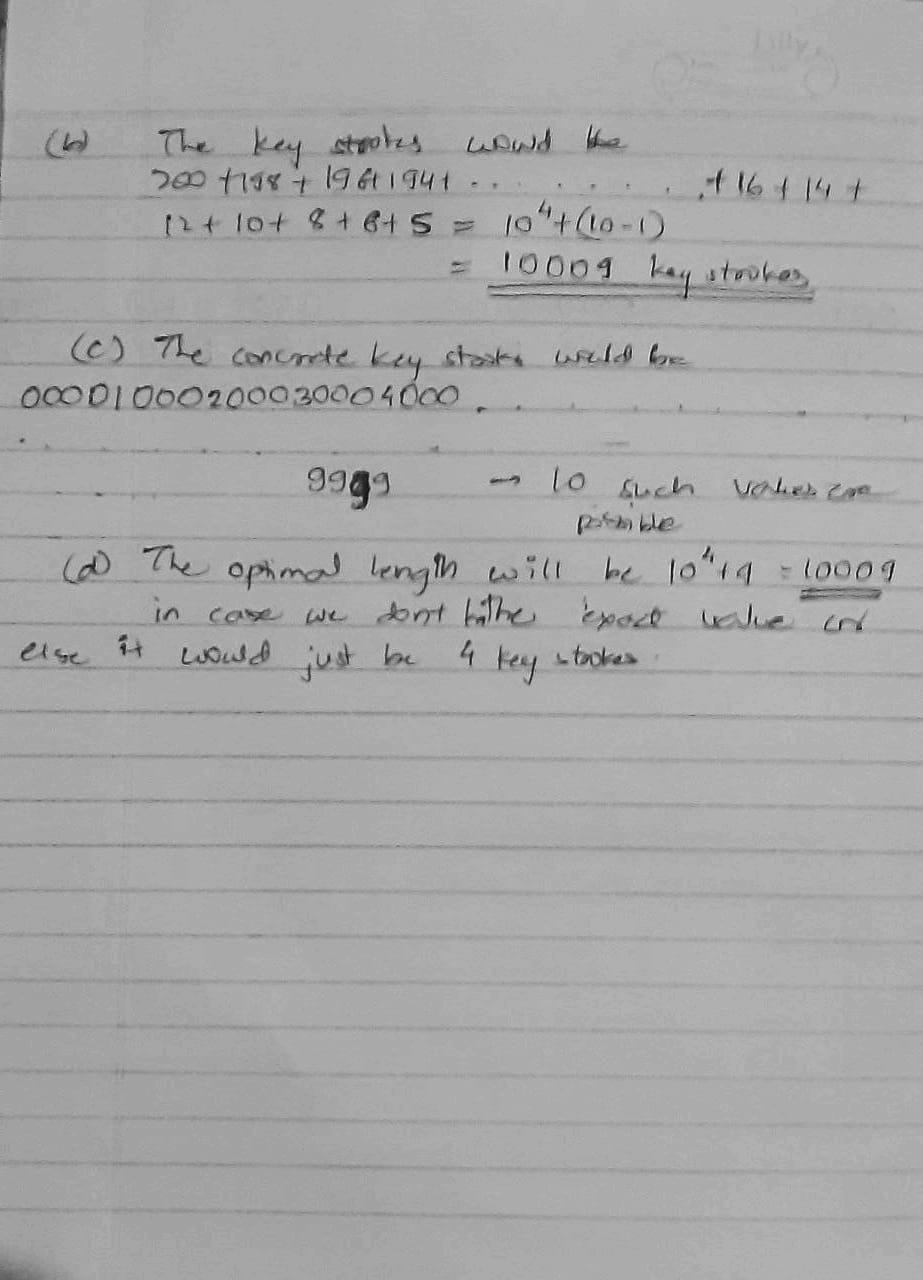 (b) The key strokes would be
200 + 198 + 196 + 194 + . . . . . . . . + 16 + 14 +
12 + 10 + 8 + 6 + 5 = 10⁴ + (10-1)
= 10009 key strokes
(c) The concrete key would be
00001000200030004000 . . . . . . .
. . . . 9999 → 10 such values are
possible
(d) The optimal length will be 10⁴+9 = 10009
in case we dont the exact value
else it would just be 4 key strokes.